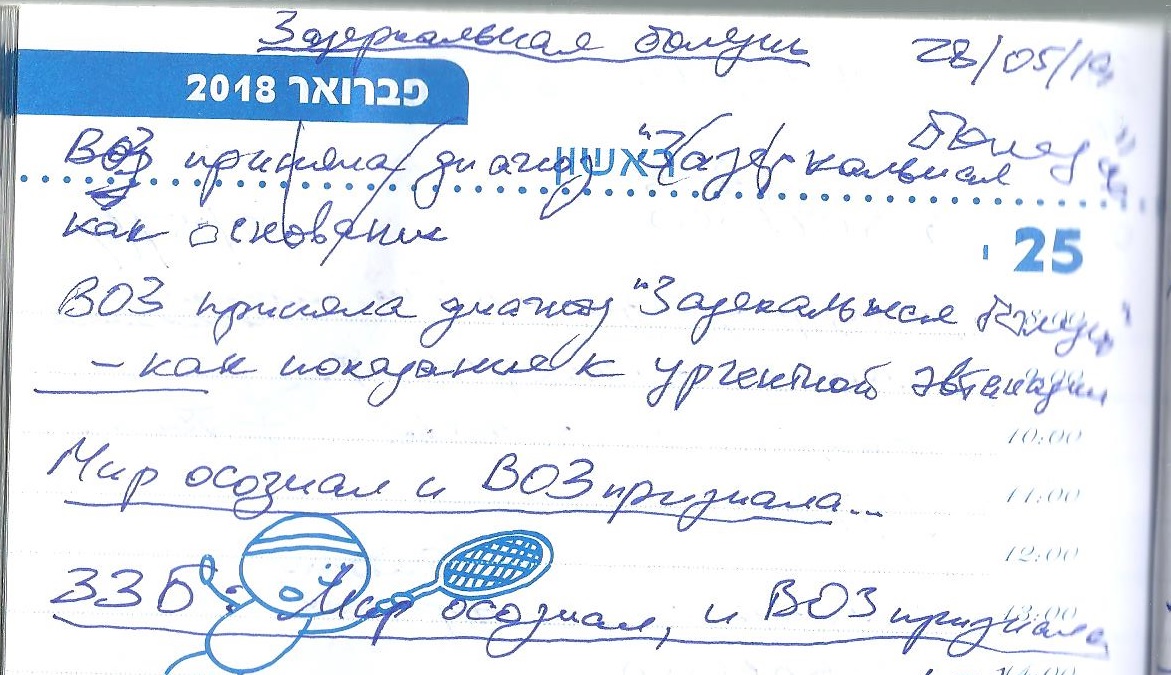 Зазеркальная болезнь 28/05/19
פברואר 2018
ВОЗ приняла диагноз "Зазеркальная Болезнь"
ראשון
как основание
25
ВОЗ приняла диагноз "Зазекальная Болезнь"
– как показание к ургентной эвтаназии
10:00
Мир осознал и ВОЗ признала...
11:00
12:00
ЗЗБ: Мир осознал, и ВОЗ признала
13:00
14:00